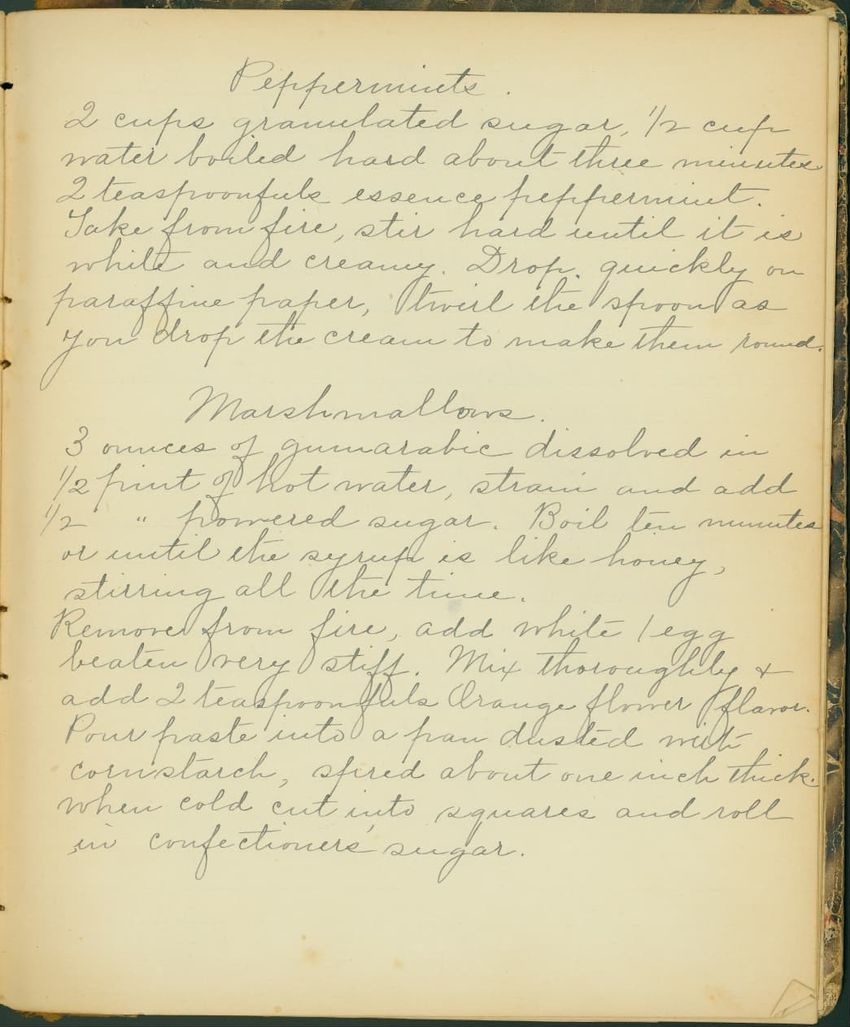 Peppermints.
2 cups granulated sugar, 1/2 cup
water boiled hard about three minutes
2 teaspoonfuls essence peppermint.
Take from fire, stir hard until it is
white and creamy. Drop. quickly on
paraffine paper, twirl the spoon as
you drop the cream to make them round.
Marshmallows.
3 ounces of gumarabic dissolved in
1/2 pint of hot water, strain and add
1/2 " powered sugar. Boil ten minutes
or until the syrup is like honey,
stirring all the time.
Remove from fire, add white 1 egg
beaten very stiff. Mix thoroughly &
add 2 teaspoonfuls Orange flower flavor.
Pour paste into a pan dusted with
cornstarch, spred about one inch thick.
when cold cut into squares and roll
in confectioners' sugar.